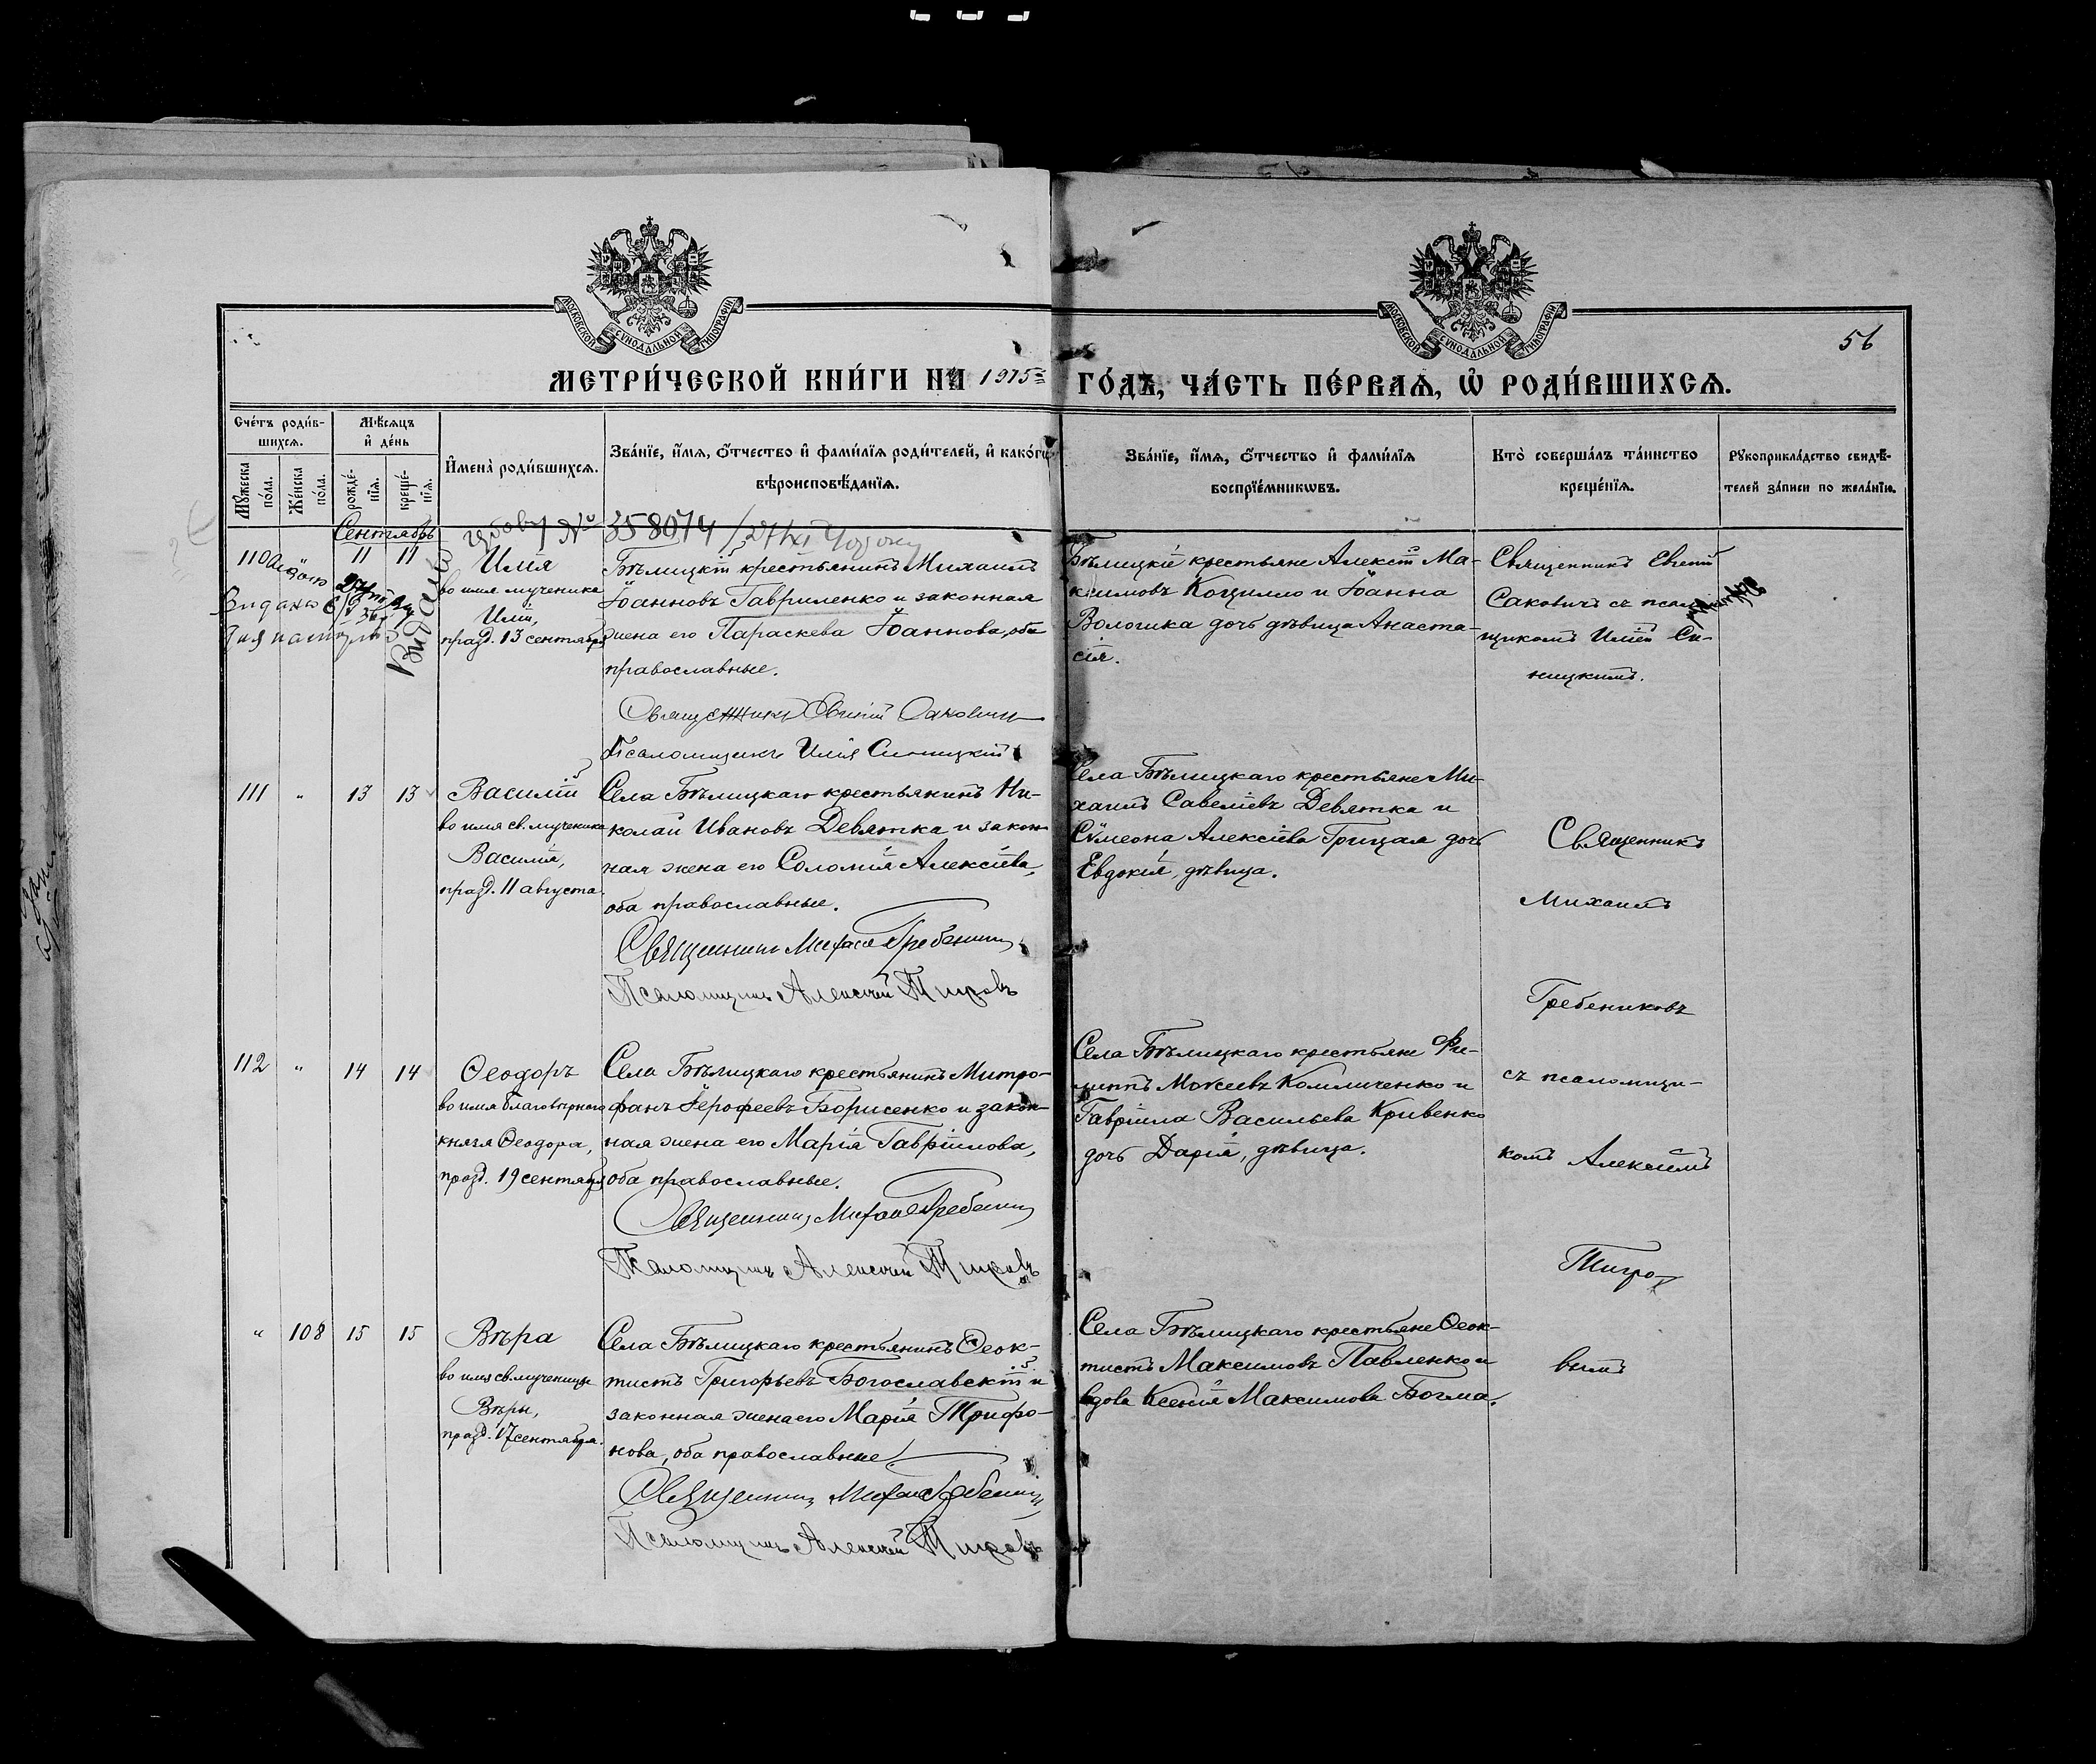 МОСКОВСКОЙ СѴНОДАЛЬНОЙ ТИПОГРАФІИ
МОСКОВСКОЙ СѴНОДАЛЬНОЙ ТИПОГРАФІИ
56
МЕТРИ́ЧЕСКОЙ КНИ́ГИ НА 1915 ГО́ДЪ, ЧА́СТЬ ПЕ́РВАѦ, Ѡ҆ РОДИ́ВШИХСѦ.
Сче́тъ роди́в-
шихсѧ.
Мѣ́сѧцъ
и҆ де́нь
Мꙋ́жеска по́ла.
Же́нска по́ла.
рожде́-
нїѧ.
креще́-
нїѧ.
И҆мена̀ роди́вшихсѧ.
Зва́нїе, и҆́мѧ, ѻ҆́тчество и҆ фами́лїѧ роди́телей, и҆ како́гѡ
вѣроисповѣ́данїѧ.
Зва́нїе, и҆́мѧ, ѻ҆́тчество и҆ фами́лїѧ
воспрїе́мникѡвъ.
Кто̀ соверша́лъ та́инство
креще́нїѧ.
Рꙋкоприкла́дство свидѣ́-
телей за́писи по жела́нїю.
Сентябрь
№ 358074
110
11 11
Илія
во имя мученика
Иліи,
празд. 13 сентября
Бѣлицкій крестьянинъ Михаилъ
Іоанновъ Гавриленко и законная
жена его Параскева Іоаннова, оба
православные.
Священникъ Евгеній Саковичъ
Псаломщикъ Илія Синицкій
Бѣлицкіе крестьяне Алексій Ма-
ксимовъ Коцилло и Іоанна
Вологика дочь дѣвица Анаста-
сія.
Священникъ Евгеній
Саковичъ съ псалом-
щикомъ Иліей Си-
ницкимъ.
Видано
Видано
111 " 13 13
Василій
во имя св. мученика
Василія,
празд. 11 августа.
Села Бѣлицкаго крестьянинъ Ни-
колай Ивановъ Девятка и закон-
ная жена его Соломія Алексіева,
оба православные.
Священникъ Михаилъ Гребениковъ
Псаломщикъ Алексей Титровъ
Села Бѣлицкаго крестьяне Ми-
хаилъ Савеліевъ Девятка и
Сѵмеона Алексіева Грицая дочь
Евдокія, дѣвица.
Священникъ
Михаилъ
Гребениковъ
съ псаломщи-
комъ Алексіемъ
Титро-
вымъ
112 " 14 14
Ѳеодоръ
во имя благовѣрнаго
князя Ѳеодора,
празд. 19 сентября
Села Бѣлицкаго крестьянинъ Митро-
фанъ Іерофеевъ Борисенко и закон-
ная жена его Марія Гавріилова,
оба православные.
Священникъ Михаилъ Гребениковъ
Псаломщикъ Алексей Титровъ
Села Бѣлицкаго крестьяне Фи-
липпъ Моѵсеевъ Компиченко и
Гавріила Васильева Кривенко
дочь Дарія, дѣвица.
" 108 15 15
Вѣра
во имя св. мученицы
Вѣры,
празд. 17 сентября.
Села Бѣлицкаго крестьянинъ Ѳеок-
тистъ Григорьевъ Богославскій и
законная жена его Марія Трифо-
нова, оба православные.
Священникъ Михаилъ Гребениковъ
Псаломщикъ Алексей Титровъ
Села Бѣлицкаго крестьяне Ѳеок-
тистъ Максимовъ Павленко и
вдова Ксенія Максимова Богма.